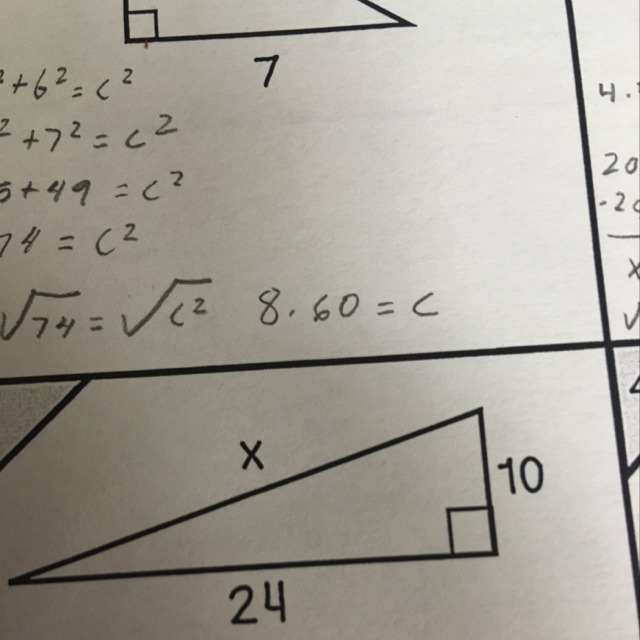 7
²+6²=c²
²+7²=c²
5+49=c²
74=c²
√74=√c² 8.60=c
4.
20
-20
x
√
x
10
24